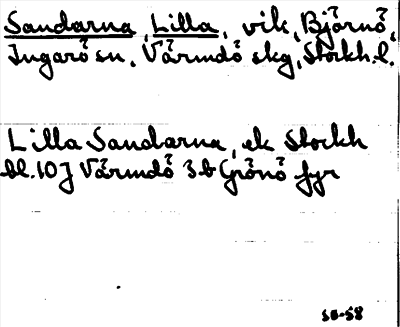 Sandarna, Lilla, vik, Björnö,
Ingarö sn, Värmdö skg, Stockh. l.
Lilla Sandarna, ek Stockh
bl. 10 J Värmdö 3 b Grönö fyr
58